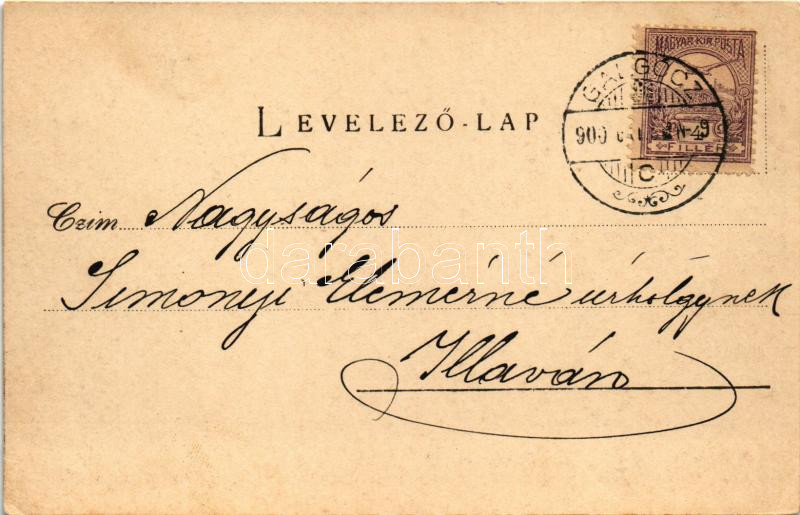 MAGYAR KIR. POSTA
GALGÓCZ
900
N 9
4
FILLÉR
C
LEVELEZŐ-LAP
Czim Nagyságos
darabanth
Simonyi Elemérné úrhölgynek
Illaván